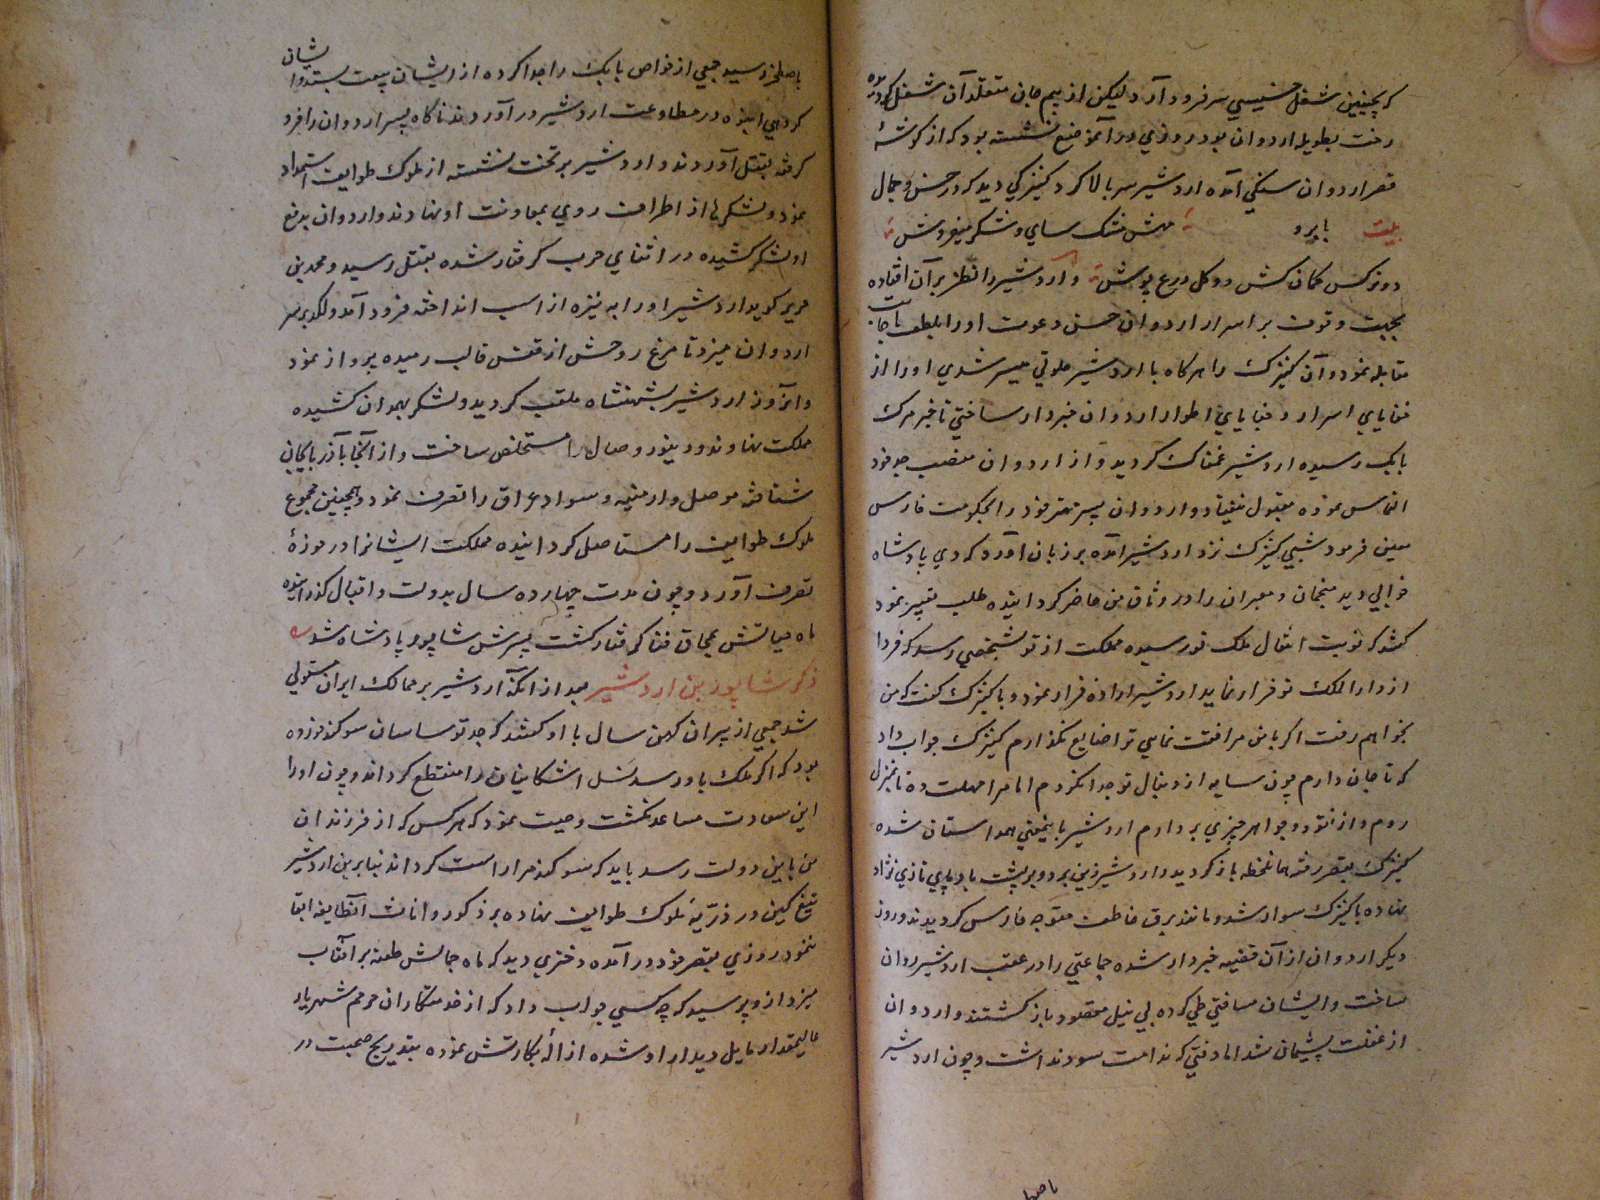 که بچنین شغل خسیسی سر فرود آرد لیکن از بیم جان متقلد آن شغل کردیده
رخت بطویله اردوان برد روزی در آنموضع نشسته بود که از کوشهٔ
قصر اردوان سنکی آمده اردشیر سر بالا کرد کنیزکی دید که در حسن و جمال
بیت با پرو مهش مشک سای و شکر میفروش
دو نرکس کمان کش دو کل درع پوش و اردشیر را نظر بر آن افتاده
بجیت وقوف بر اسرار اردوان حسن دعوت او را بلطف اجابت
مقابله نمود و آن کنیزک را هر کاه با اردشیر خلوتی میسر شدی او را از
خفایای اسرار و خبایای اطوار اردوان خبردار ساختی تا خبر مرک
بابک رسیده اردشیر غمناک کردید و از اردوان منصب جد خود
التماس نموده مقبول نیفتاد و اردوان پسر مهتر خود را بحکومت فارس
معین فرمود شبی کنیزک نزد اردشیر آمده بر زبان آورد که دی پادشاه
خوابی دید منجمان و معبران را در وثاق من حاضر کردانیده طلب تعبیر نمود
کفتند که نوبت انتقال ملک تو رسیده مملکت از تو بشخصی رسد که فردا
از دار الملک تو فرار نماید اردشیر اراده فرار نمود و با کنیزک کفت که من
بخواهم رفت اکر با من مرافقت نمایی ترا ضایع نکذارم کنیزک جواب داد
که تا جان دارم چون سایه از دنبال تو جدا نکردم اما مرا مهلت ده تا بمنزل
روم و از نقود و جواهر چیزی بردارم اردشیر باینمعنی همداستان شده
کنیزک بقصر رفته همانلحظه باز کردید و اردشیر زین بر دو بر پشت باد پای تازی نژاد
نهاده با کنیزک سوار شد و مانند برق خاطف متوجه فارس کردیدند و روز
دیکر اردوان از آن قضیه خبردار شده جماعتی را در عقب اردشیر روان
ساخت و ایشان مسافتی طی کرده بی نیل مقصود باز کشتند و اردوان
از غفلت پشیمان شد اما دقتی که ندامت سود نداشت و چون اردشیر
باصطخر رسید جمعی از خواص بابک را جدا کرده از ایشان بیعت بستد و ایشان
کروهی انبوه در مطاوعت اردشیر در آوردند ناکاه پسر اردوان را فرو
کرفته بقتل آوردند و اردشیر بر تخت نشسته از ملوک طوایف استمداد
نمود و لشکرها از اطراف روی بمعاونت او نهادند و اردوان بدفع
او لشکر کشیده در اثنای حرب کرفتار شده بقتل رسید و محمد بن
جریر کوید اردشیر او را به نیزه از اسب انداخته فرود آمد و لکد بر سر
اردوان میزد تا مرغ روحش از قفس قالب رمیده پرواز نمود
و آنروز اردشیر بشهنشاه ملقب کردید و لشکر بهمدان کشیده
مملکت نهاوند و دینور و را مستخلص ساخت و از آنجا بآذربایجان
شتافته موصل و ارمنیه و سواد عراق را تصرف نمود و همچنین مجموع
ملوک طوایف را مستاصل کردانیده مملکت ایشانرا در حوزهٔ
تصرف آورد و چون مدت چهارده سال بدولت و اقبال کذرانیده
ماه حیاتش بمحاق فنا کرفتار کشت پسرش شاپور پادشاه شد
ذکر شاپور بن اردشیر بعد از آنکه اردشیر بر ممالک ایران مستولی
شد جمعی از پیران کهن سال با او کفتند که جد تو ساسان سوکند خورده
بود که اکر ملک باو رسد نسل اشکانیان را منقطع کرداند و چون او را
این سعادت مساعد نکشت وصیت نمود که هر کس که از فرزندان
من باین دولت رسد باید که سوکند مرا راست کرداند بنا برین اردشیر
تیغ کین در ذریهٔ ملوک طوایف نهاده بر ذکور و اناث آنطایفه ابقا
ننمود روزی بقصر خود در آمده دختری دید که ماه جمالش طعنه بر آفتاب
میزد از و پرسید که چه کسی جواب داد که از خدمتکاران حرم شهریار
عالیمقدارم مایل دیدار او شده ازالهٔ بکارتش نموده بتدریج صحبت در